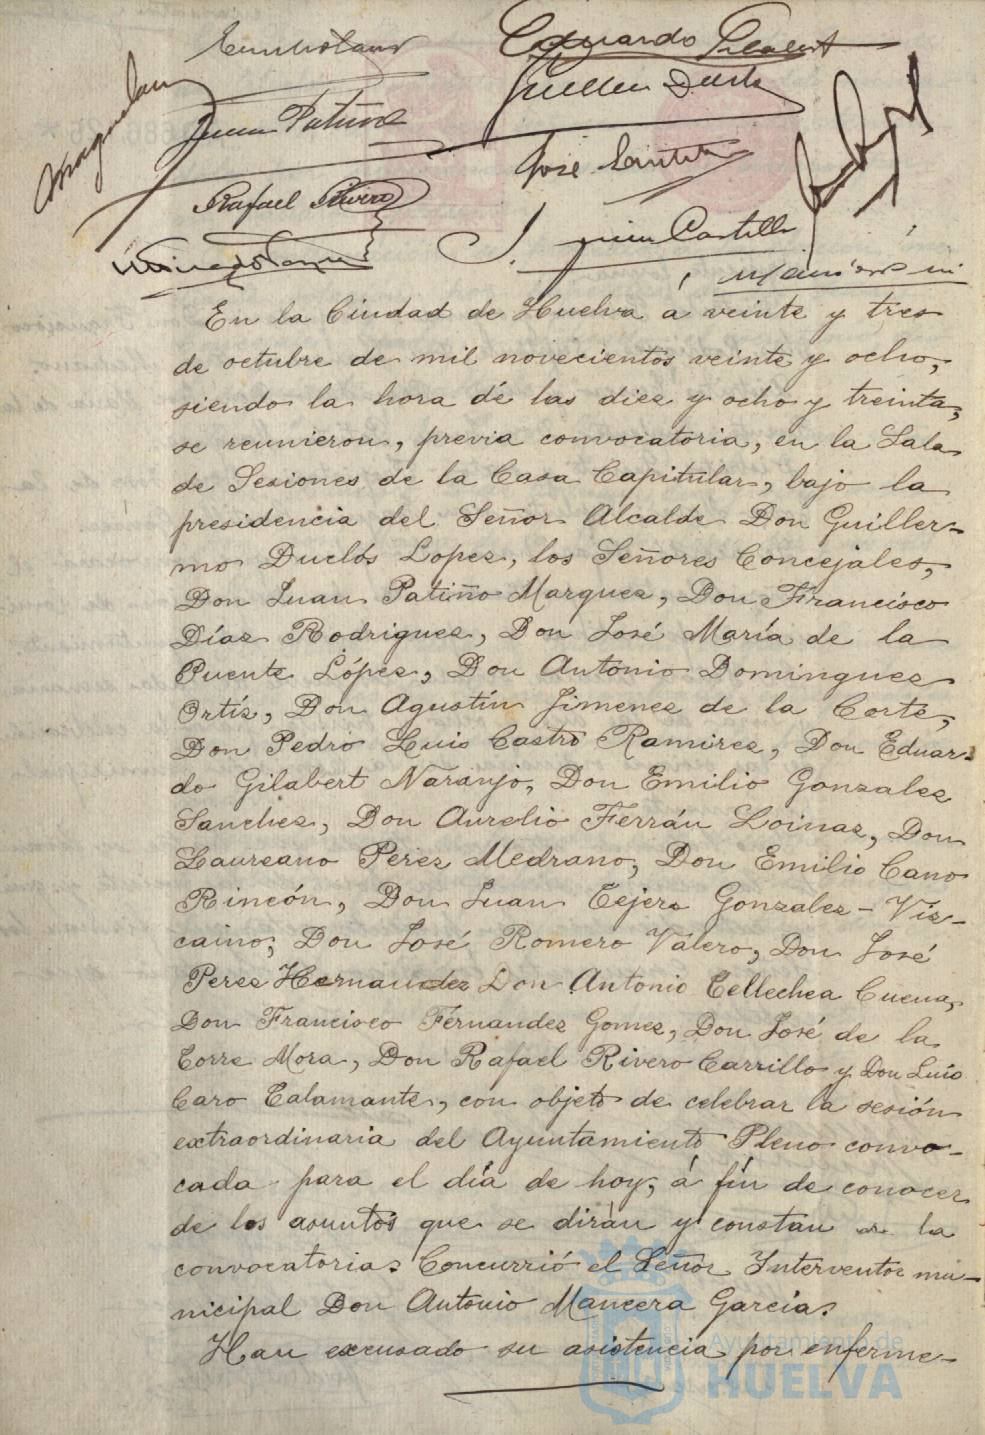 Eduardo Gilabert
Juan Patiño
José
Rafael Rivero
Castillo
En la Ciudad de Huelva á veinte y tres
de octubre de mil novecientos veinte y ocho,
siendo la hora dé las diez y ocho y treinta,
se reunieron, previa convocatoria, en la Sala
de Sesiones de la Casa Capitular, bajo la
presidencia del Señor Alcalde Don Guiller-
mo Duclós Lopez, los Señores Concejales,
Don Juan Patiño Marquez, Don Francisco
Díaz Rodriguez, Don José María de la
Puente López, Don Antonio Dominguez
Ortíz, Don Agustín Jimenez de la Corte,
Don Pedro Luis Castro Ramirez, Don Eduar-
do Gilabert Naranjo, Don Emilio Gonzalez
Sanchez, Don Aurelio Ferrán Loinaz, Don
Laureano Perez Medrano, Don Emilio Cano
Rincón, Don Juan Tejero Gonzalez-Viz-
caino, Don José Romero Valero, Don José
Perez Hernandez Don Antonio Tellechea Cuena,
Don Francisco Fernandez Gomez, Don José de la
Torre Mora, Don Rafael Rivero Carrillo y Don Luis
Caro Talamante, con objeto de celebrar la sesión
extraordinaria del Ayuntamiento Pleno convo-
cada para el día de hoy, á fín de conocer
de los asuntos que se dirán y constan en la
convocatoria. Concurrió el Señor Interventor mu-
nicipal Don Antonio Mancera García.
Han excusado su asistencia por enferme-
Ayuntamiento de
HUELVA